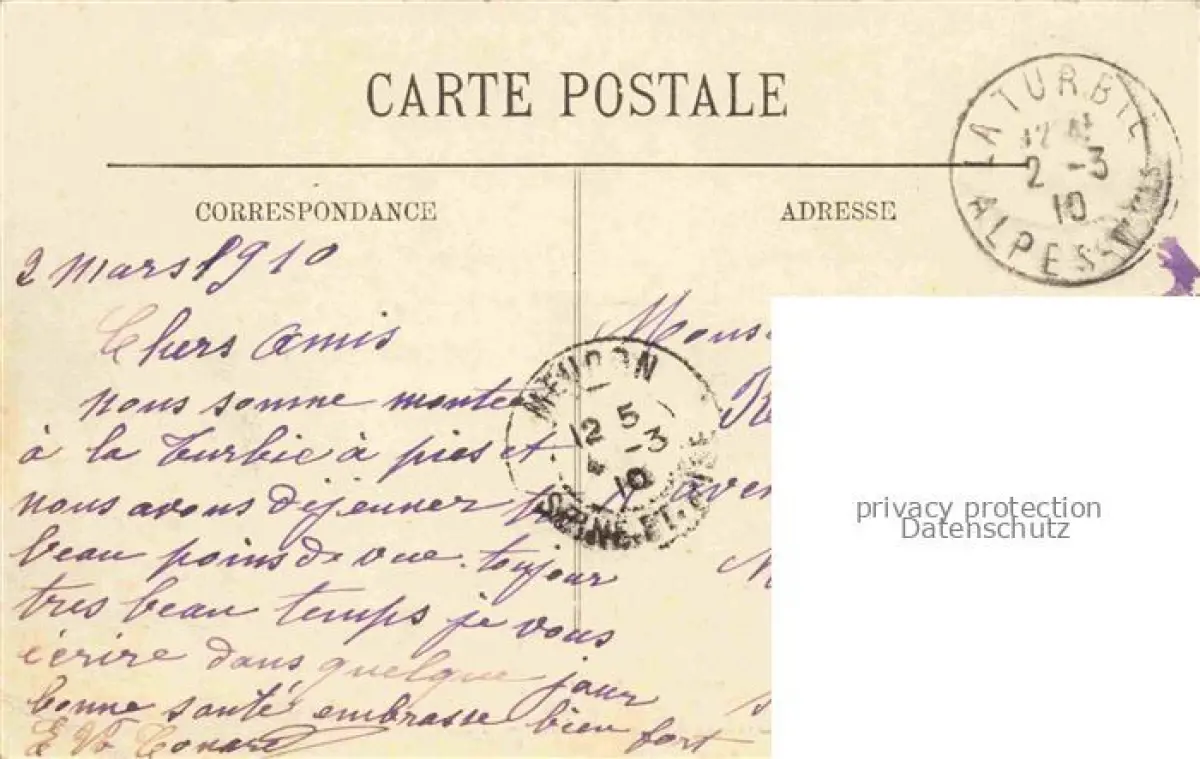 CARTE POSTALE
LA TURBIE
12
2 -3
10
ALPES-M
CORRESPONDANCE
ADRESSE
2 mars 1910
Chers Amis
nous somme monter
à la Turbie à pies et
nous avons déjeuner
beau poins de vue. toujour
tres beau temps je vous
écrire dans quelque jour
bonne santé embrasse bien fort
Mons
MEUDON
12 5
-3
10
SEINE-ET-OISE
aven
privacy protection
Datenschutz